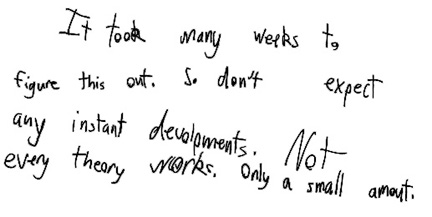 It took many weeks to
figure this out. So don't expect
any instant devolpments. Not
every theory works. Only a small amout.